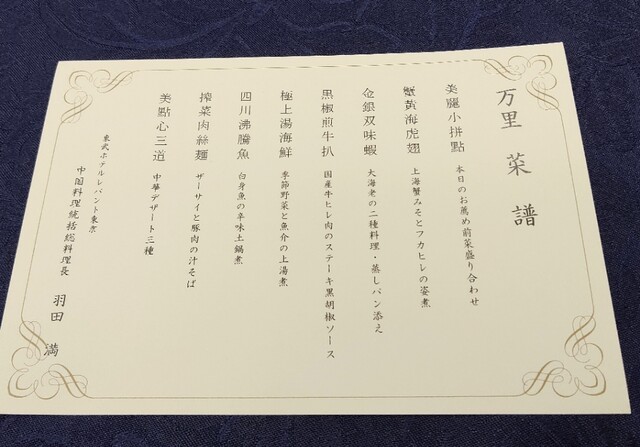 万里菜譜
美麗小拼點 本日のお薦め前菜盛り合わせ
蟹黄海虎翅 上海蟹みそとフカヒレの姿煮
金銀双味蝦 大海老の二種料理・蒸しパン添え
黒椒煎牛扒 国産牛ヒレ肉のステーキ黒胡椒ソース
極上湯海鮮 季節野菜と魚介の上湯煮
四川沸騰魚 白身魚の辛味土鍋煮
搾菜肉絲麺 ザーサイと豚肉の汁そば
美點心三道 中華デザート三種
東武ホテルレバント東京
中国料理統括総料理長 羽田 満